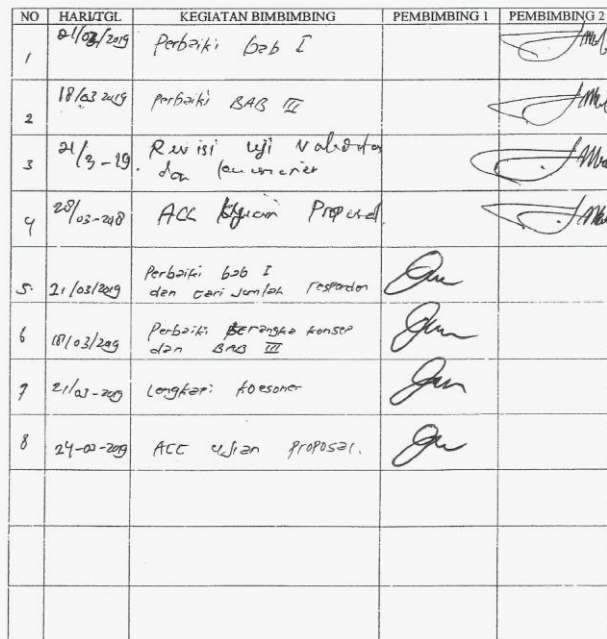 NO HARI/TGL KEGIATAN BIMBIMBING PEMBIMBING 1 PEMBIMBING 2
1 /2019 Perbaiki bab I
2 18/03 2019 Perbaiki BAB III
3 21/3-19 Revisi uji
dan
4 28/03- ACC Proposal.
5. 21/03/2019 Perbaiki bab I
dan cari jumlah responden
6 18/03/2019 Perbaiki kerangka konsep
dan BAB III
7 21/03-2019 Lengkapi koesoner
8 24-03-2019 ACC ujian proposal.